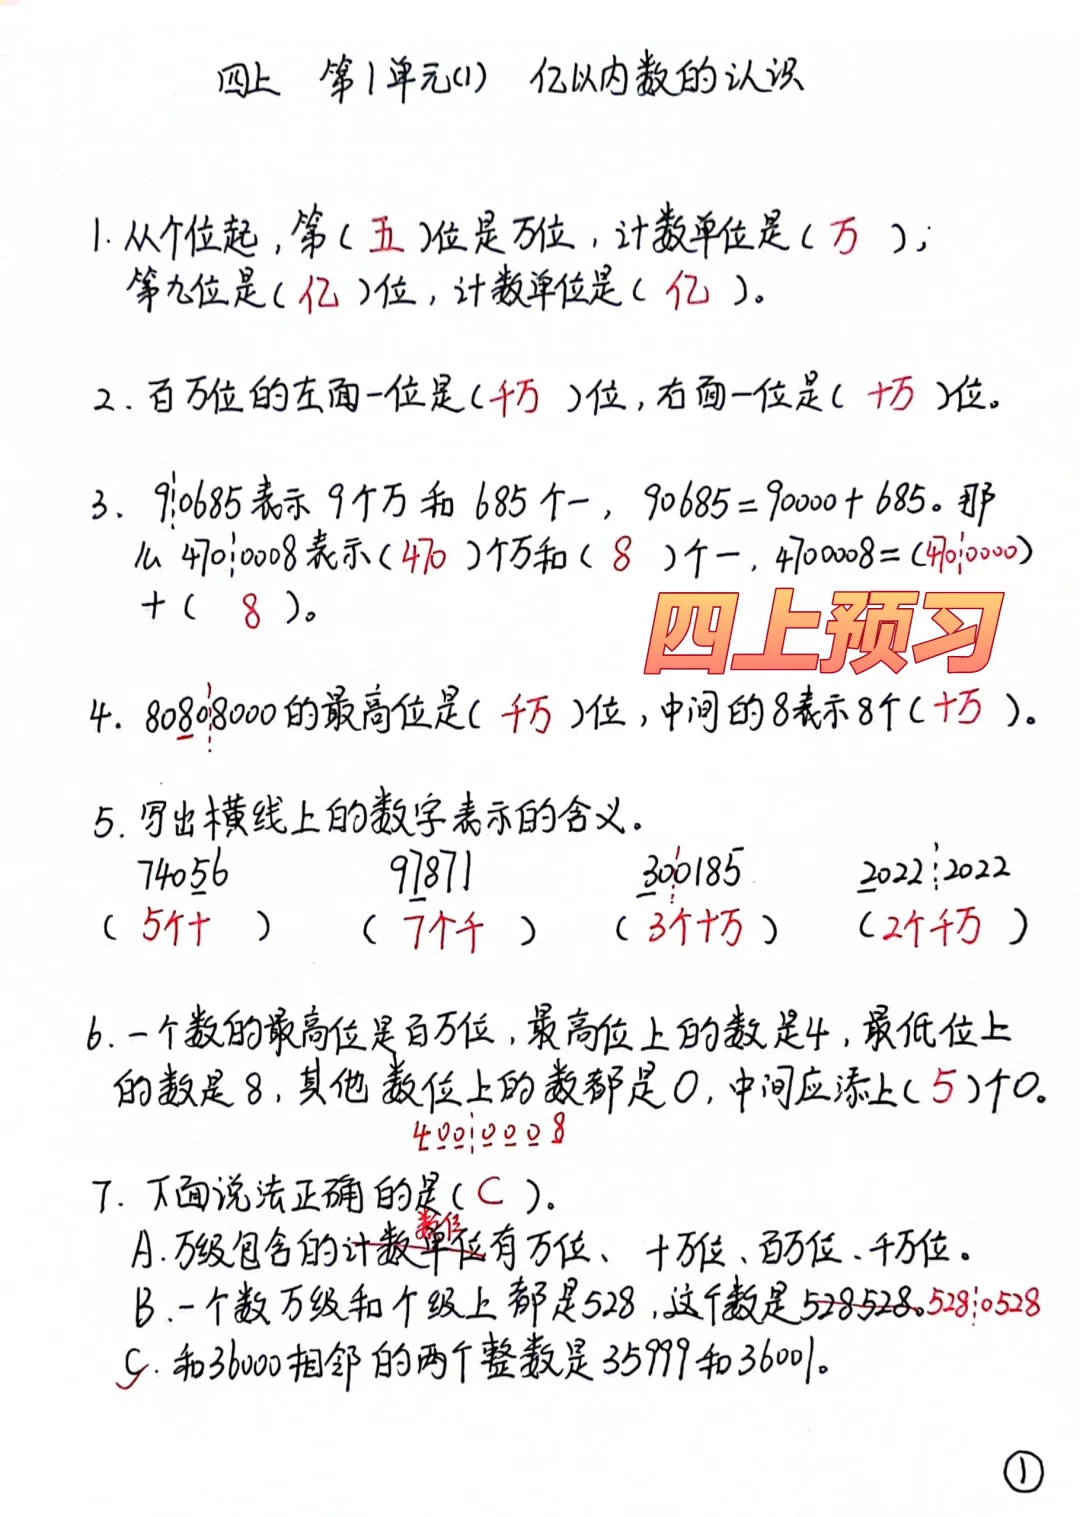 四上 第1单元(1) 亿以内数的认识
1. 从个位起，第（五）位是万位，计数单位是（万）；
第九位是（亿）位，计数单位是（亿）。
2. 百万位的左面一位是（千万）位，右面一位是（十万）位。
3. 9¦0685表示9个万和685个一，90685=90000+685。那
么470¦0008表示（470）个万和（8）个一，4700008=（470¦0000）
+（8）。
四上预习
4. 8080¦8000的最高位是（千万）位，中间的8表示8个（十万）。
5. 写出横线上的数字表示的含义。
74056 97871 30¦0185 2022¦2022
（5个十） （7个千） （3个十万） （2个千万）
6. 一个数的最高位是百万位，最高位上的数是4，最低位上
的数是8，其他数位上的数都是0，中间应添上（5）个0。
400¦0008
7. 下面说法正确的是（C）。
数位
A. 万级包含的计数单位有万位、十万位、百万位、千万位。
B. 一个数万级和个级上都是528，这个数是528528。528¦0528
C. 和36000相邻的两个整数是35999和36001。
①